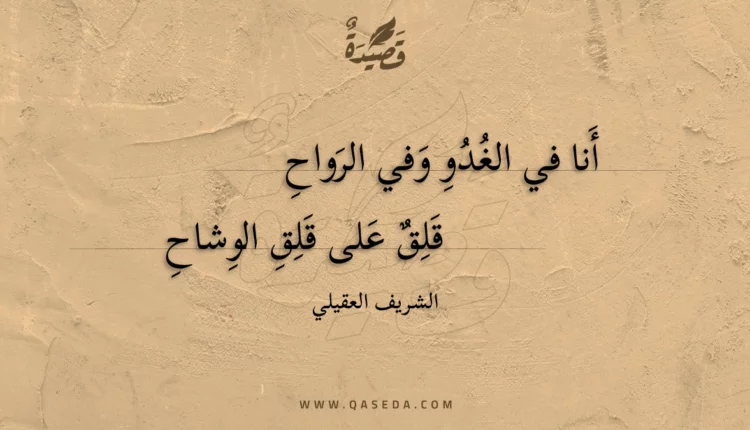 قَصِيدَةٌ
أَنا في الغُدُوِ وَفي الرَواحِ
قَلِقٌ عَلى قَلِقِ الوِشاحِ
الشريف العقيلي
WWW.QASEDA.COM